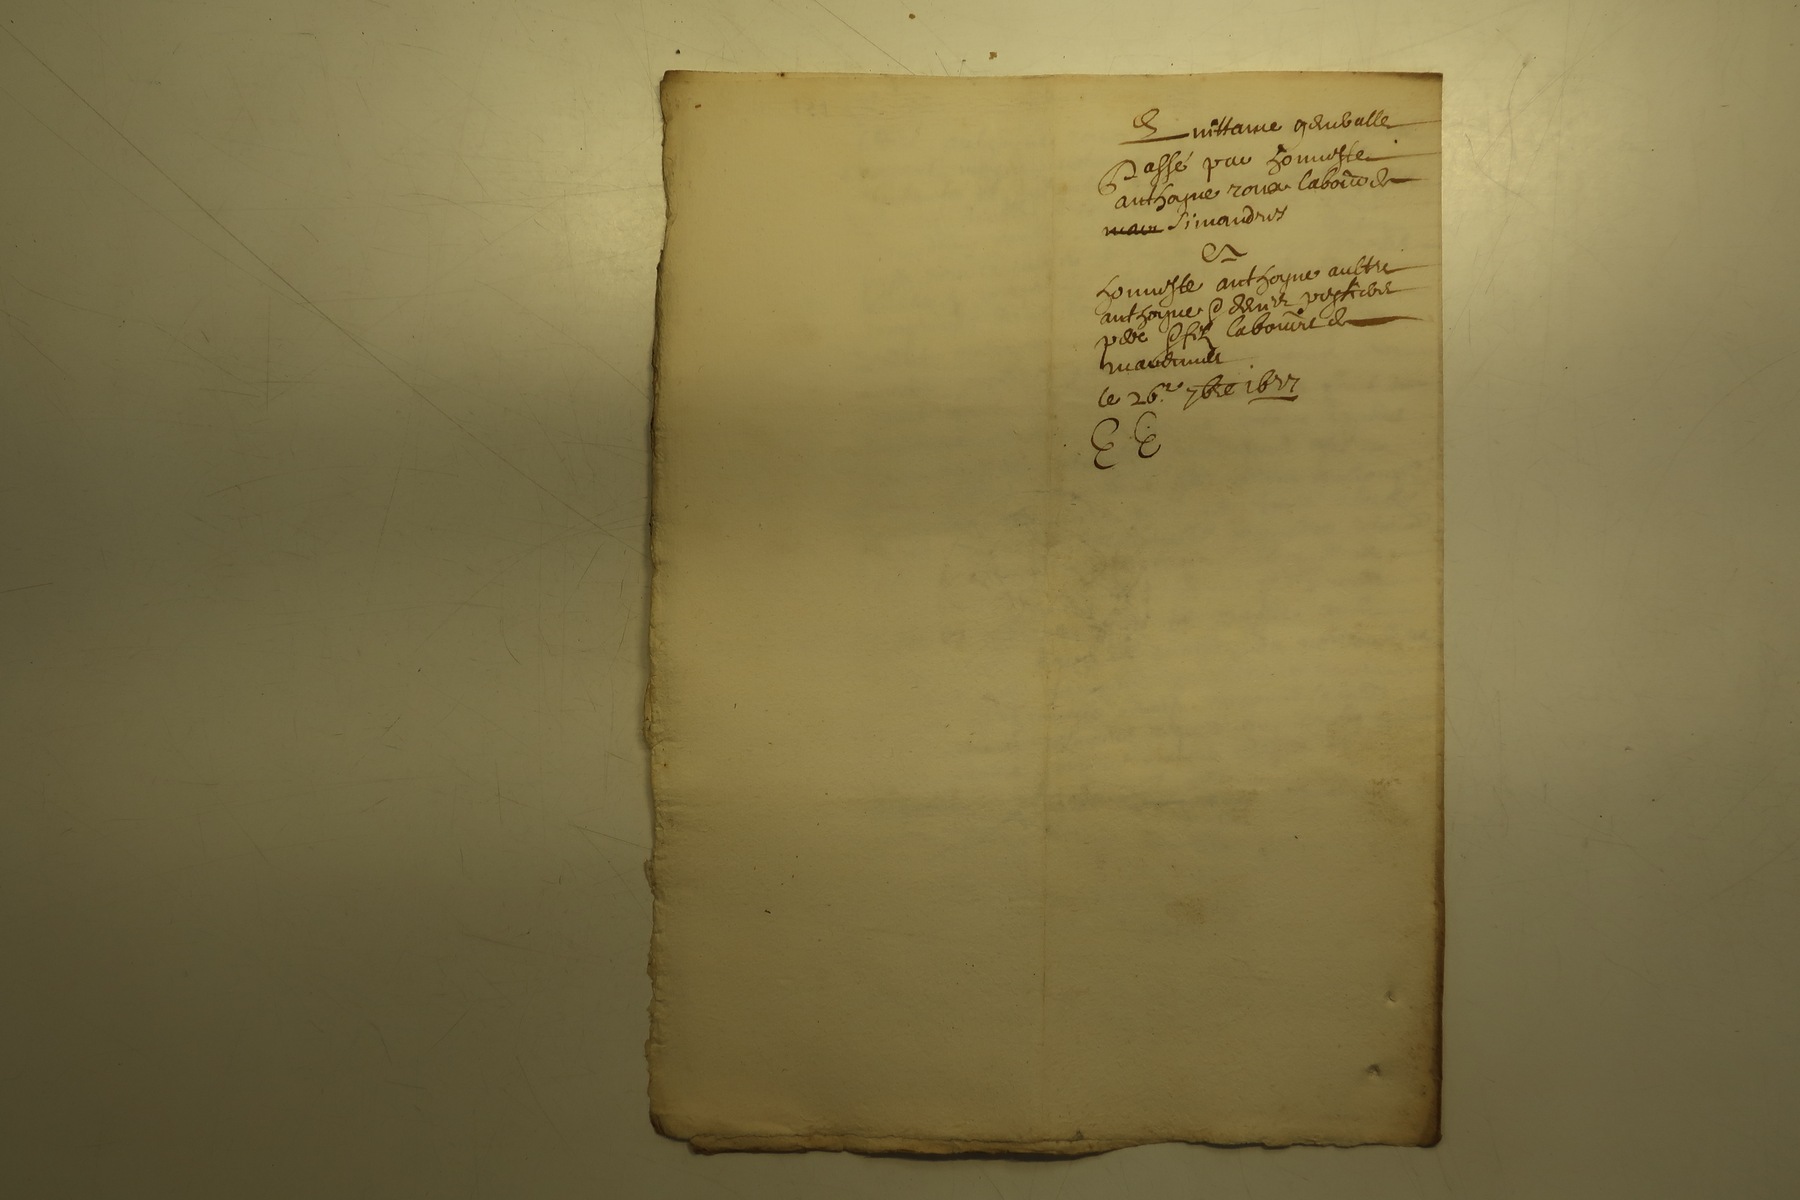 Quittance generalle
Passé par honneste
anthoyne roux labor de
Simandres
A
honneste anthoyne aultre
anthoyne & denis
pere & filz labourr de
le 26.e 7bre 1677